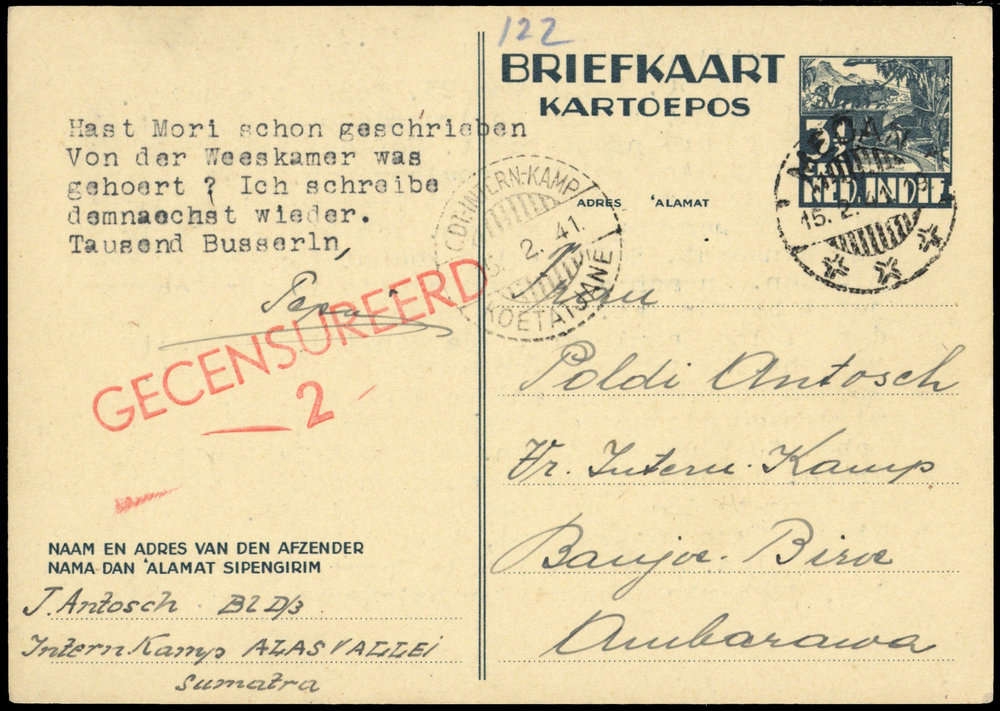 122
BRIEFKAART
KARTOEPOS
Hast Mori schon geschrieben
Von der Weeskamer was
gehoert ? Ich schreibe
demnaechst wieder.
Tausend Busserln,
Pepi
GECENSUREERD
2
INTERN-KAMP
2. 41.
KOETATJANE
MEDAN
15. 2. 41.
NED. INDIE
ADRES 'ALAMAT
Frau
Poldi Antosch
Vr. Intern. Kamp
Banjoe-Biroe
Ambarawa
NAAM EN ADRES VAN DEN AFZENDER
NAMA DAN 'ALAMAT SIPENGIRIM
J. Antosch. Bl D/3
Intern. Kamp ALASVALLEI
Sumatra